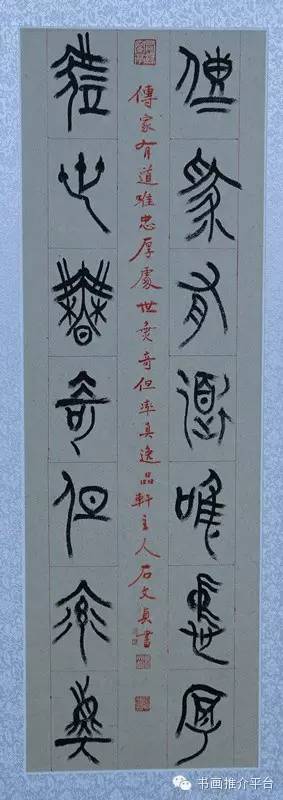 傳家有道唯忠厚
傳家有道唯忠厚處世無奇但率真逸品軒主人石文貞書
處世無奇但率真
书画推介平台